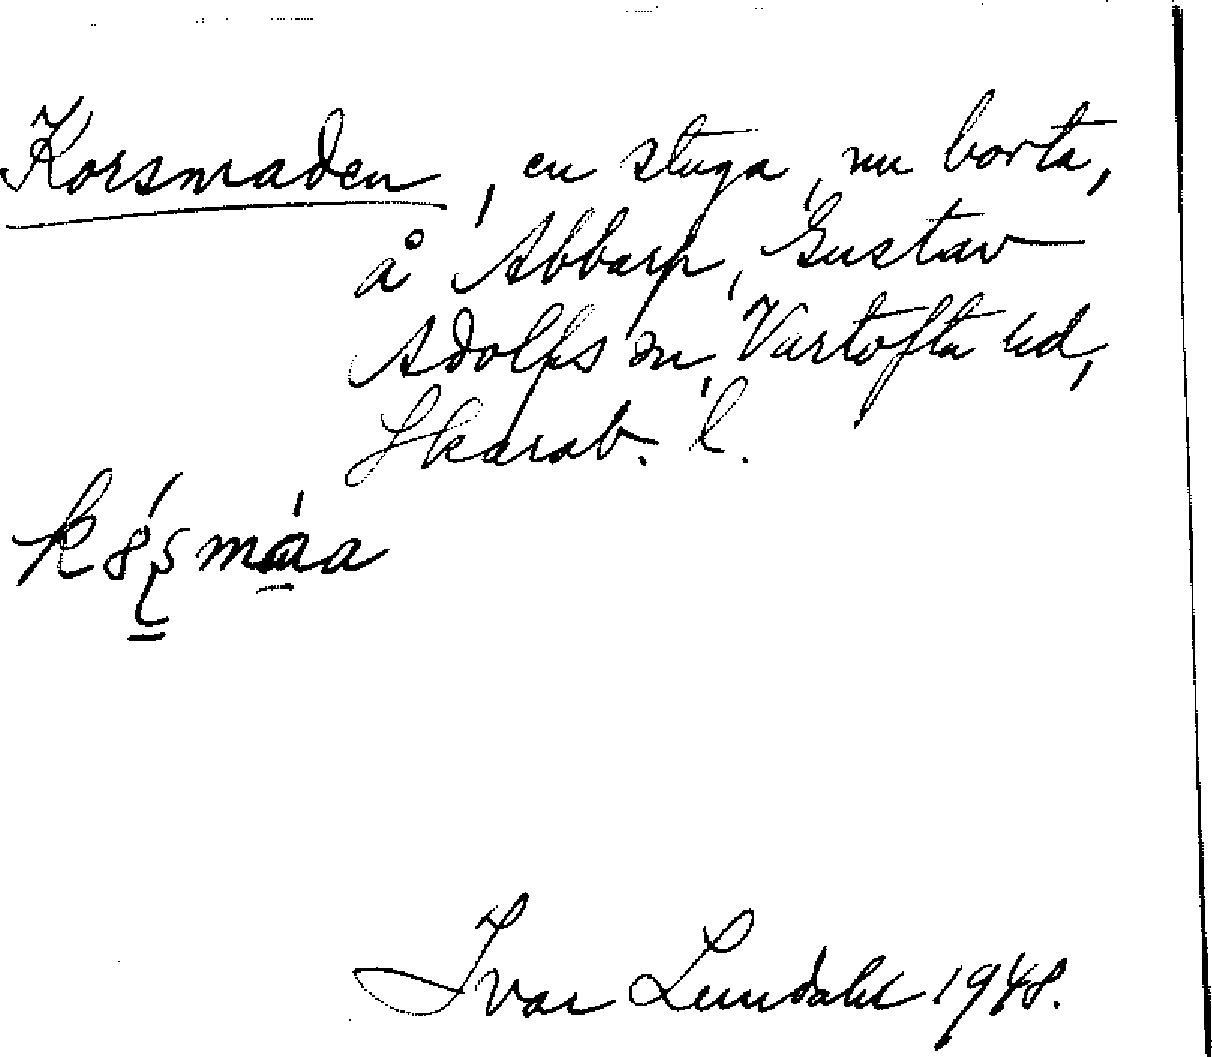 Korsmaden, en stuga, nu borta,
å Abbarp, Gustav
Adolfs sn, Vartofta hd,
Skarab. l.
Ivar Lundahl 1948.